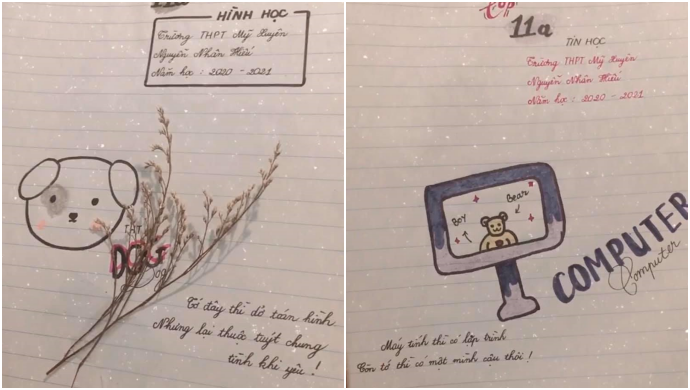 11a
HÌNH HỌC
Trường THPT Mỹ Xuyên
Nguyễn Nhân Hiếu
Năm học : 2020 - 2021
THT
DOG
Dog
Tớ đây thì dở toán hình
Nhưng lại thuộc tuýt chung
tình khi yêu !
Lớp
11a
TIN HỌC
Trường THPT Mỹ Xuyên
Nguyễn Nhân Hiếu
Năm học : 2020 - 2021
BOY
Bear
COMPUTER
Computer
Máy tính thì có lập trình
Còn tớ thì có một mình cậu thôi !